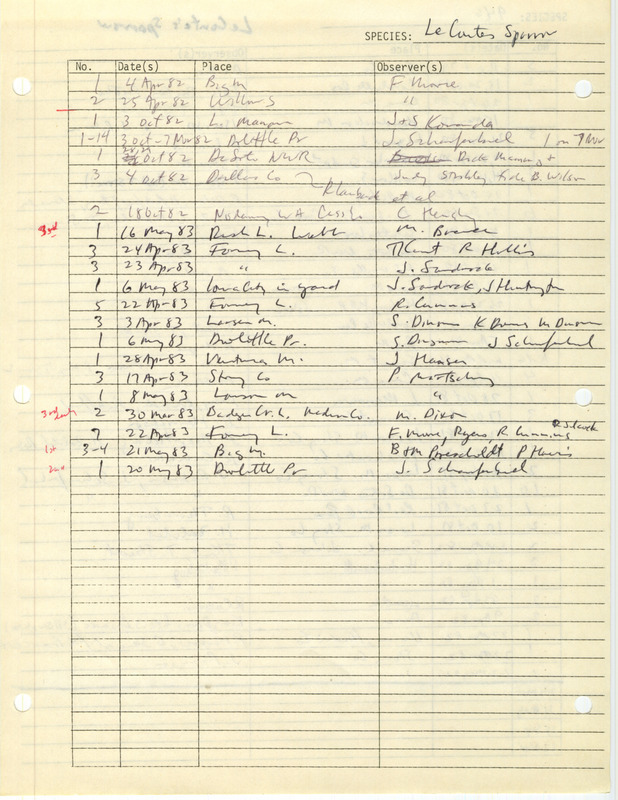 SPECIES: LeContes Sparrow
No. Date(s) Place Observer(s)
1 4 Apr 82 Big M F Moore
2 25 Apr 82 "
1 3 Oct 82 L. J + S Konarda
1-14 3 Oct - 7 Nov 82 Dolittle Pr J. Schaufenbuel 1 on 7 Nov
1 Oct 82 DeSoto NWR Dick Manning +
3 4 Oct 82 Dallas Co Judy fide B. Wilson
et al
2 18 Oct 82 Nodaway W A Cass Co
3rd 1 16 May 83 Rush L. M. Brewer
3 24 Apr 83 Forney L. TKent R Hollis
3 23 Apr 83 " J. Sandrock
1 6 May 83 locality in yard J. Sandrock, J Huntington
5 22 Apr 83 Forney L. R. Cummins
3 3 Apr 83 Larson M. S. Dinsmore K Dinsmore M Dinsmore
1 6 May 83 Doolittle Pr. S. Dinsmore J Schaufenbuel
1 28 Apr 83 Ventura M. J Hansen
3 17 Apr 83 Story Co P. Martsching
1 8 May 83 Larson M "
3rd early 2 30 Mar 83 Badger Cr. L. Madison Co. M. Dixon
7 22 Apr 83 Forney L. F. Moore, R. Cummins
1st 3-4 21 May 83 Big M. B+M Proescholdt P Harris
2nd 1 20 May 83 Doolittle Pr J. Schaufenbuel